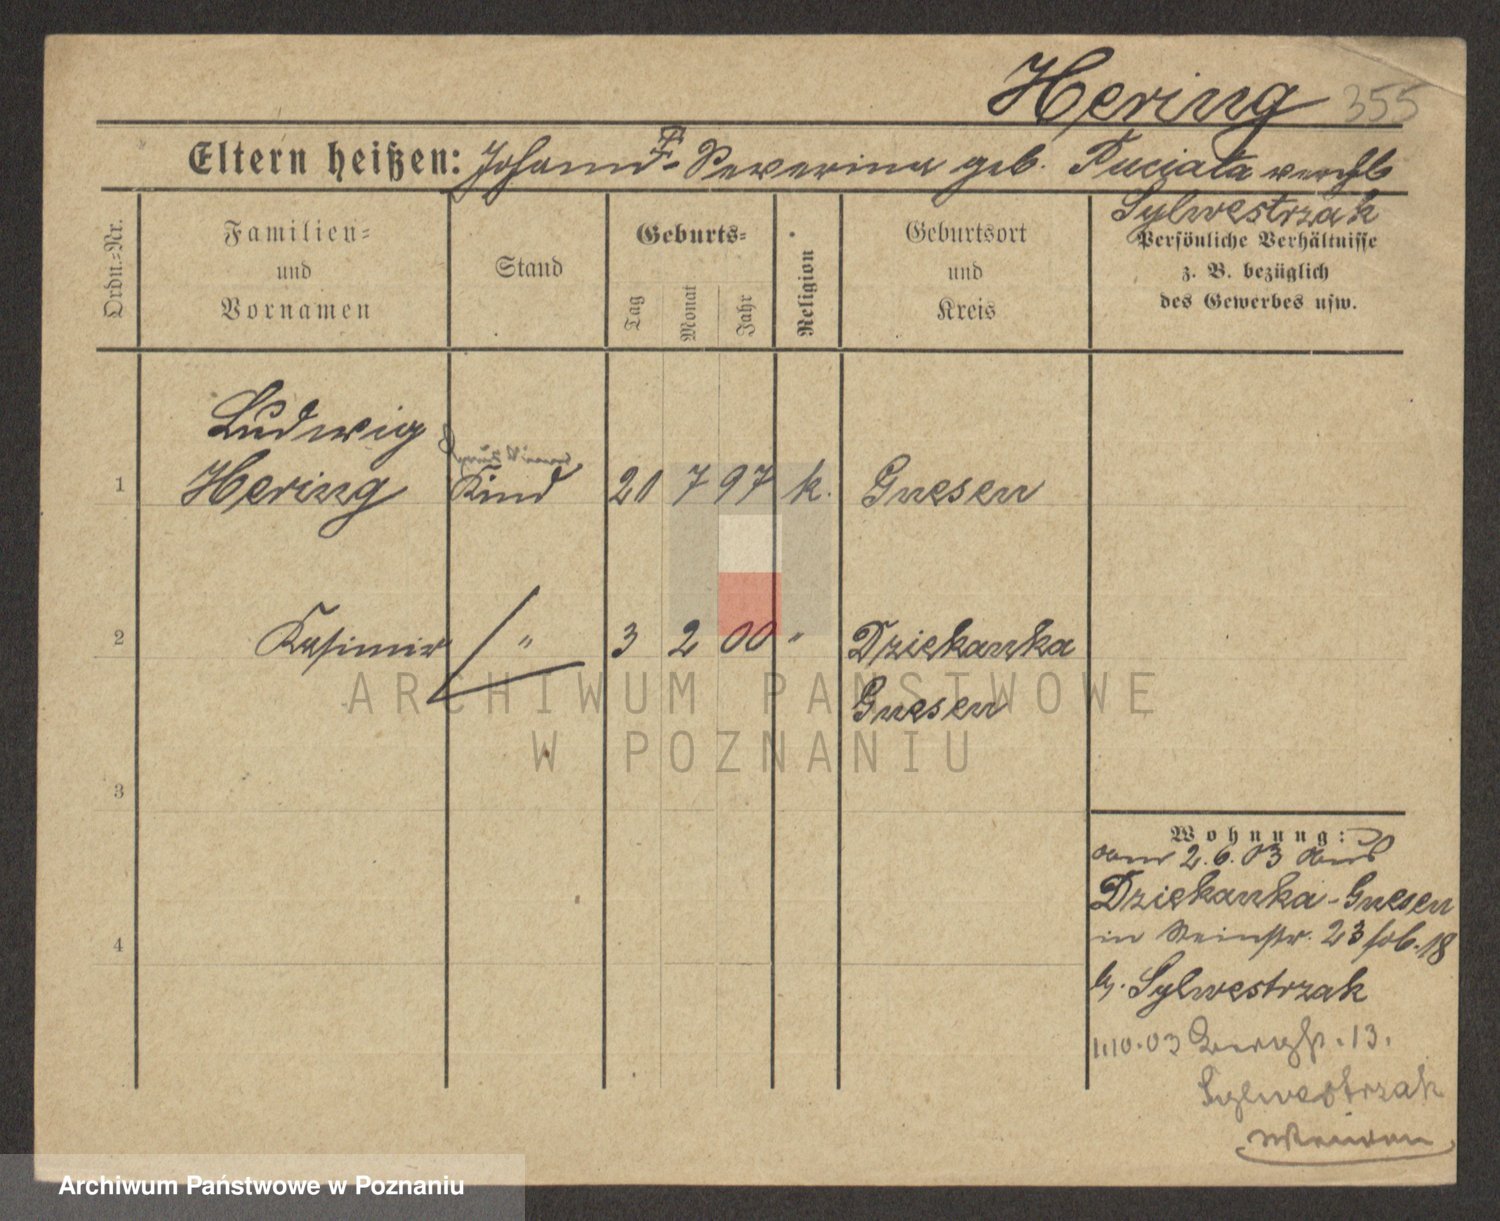 Hering 355
Eltern heißen: Johann Severina geb. Puciata verehl
Sylwestrzak
Ordn.-Nr.
Familien-
und
Vornamen
Stand
Geburts-
Tag
Monat
Jahr
Religion
Geburtsort
und
Kreis
Persönliche Verhältnisse
z. B. bezüglich
des Gewerbes usw.
Ludwig
1 Hering Kind 20 7 97 k. Gnesen
2 Kasimir " 3 2 00 " Dziekanka
Gnesen
3
4
Wohnung:
am 2.6.03 aus
Dziekanka-Gnesen
in Steinstr. 23 18
b. Sylwestrzak
1.10.03 13.
Sylwestrzak
ARCHIWUM PAŃSTWOWE
W POZNANIU
Archiwum Państwowe w Poznaniu